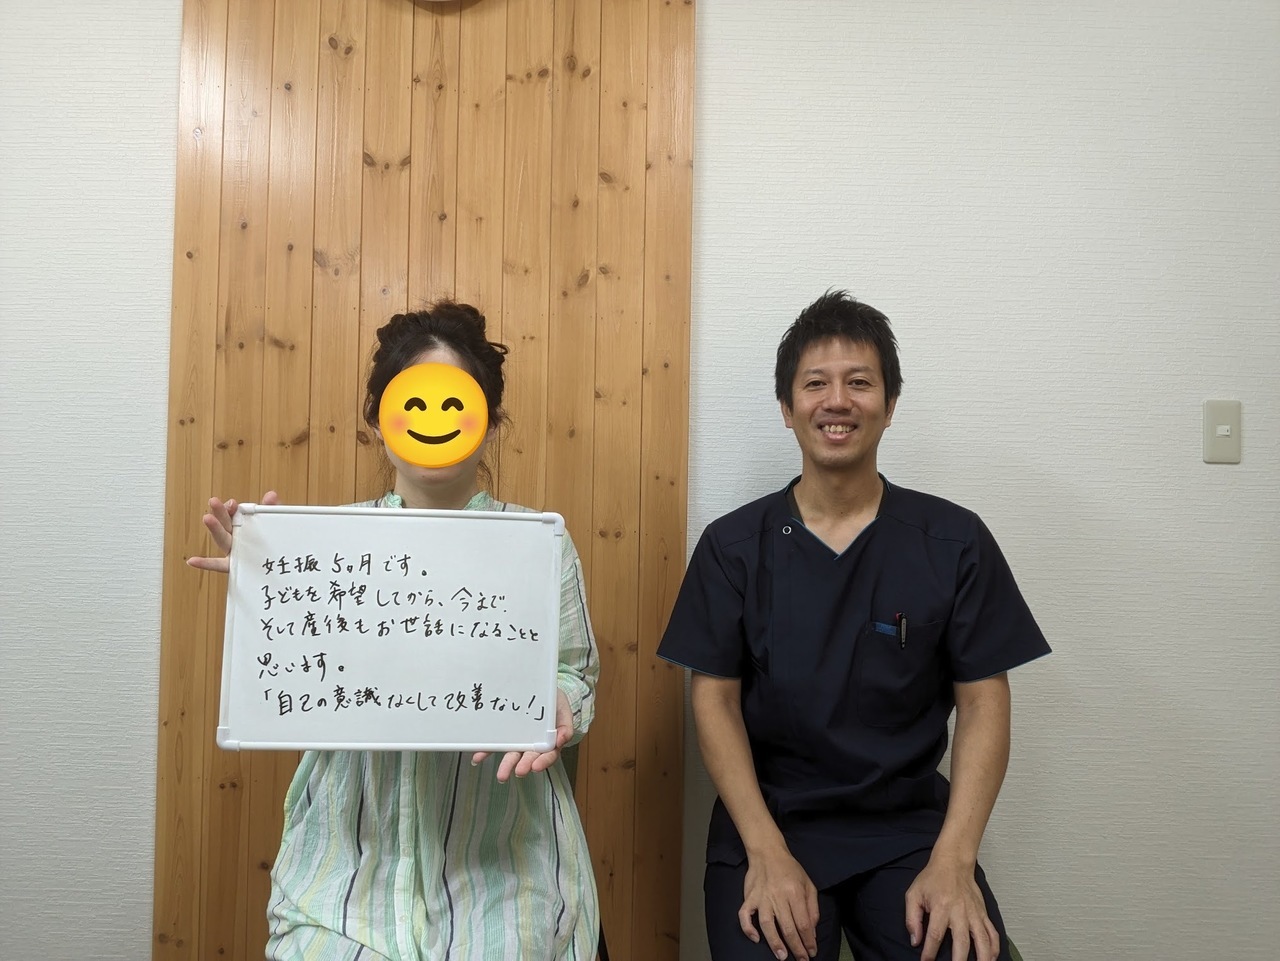 妊娠5ヶ月です。
子どもを希望してから、今まで、
そして産後もお世話になることと
思います。
「自己の意識なくして改善なし!」